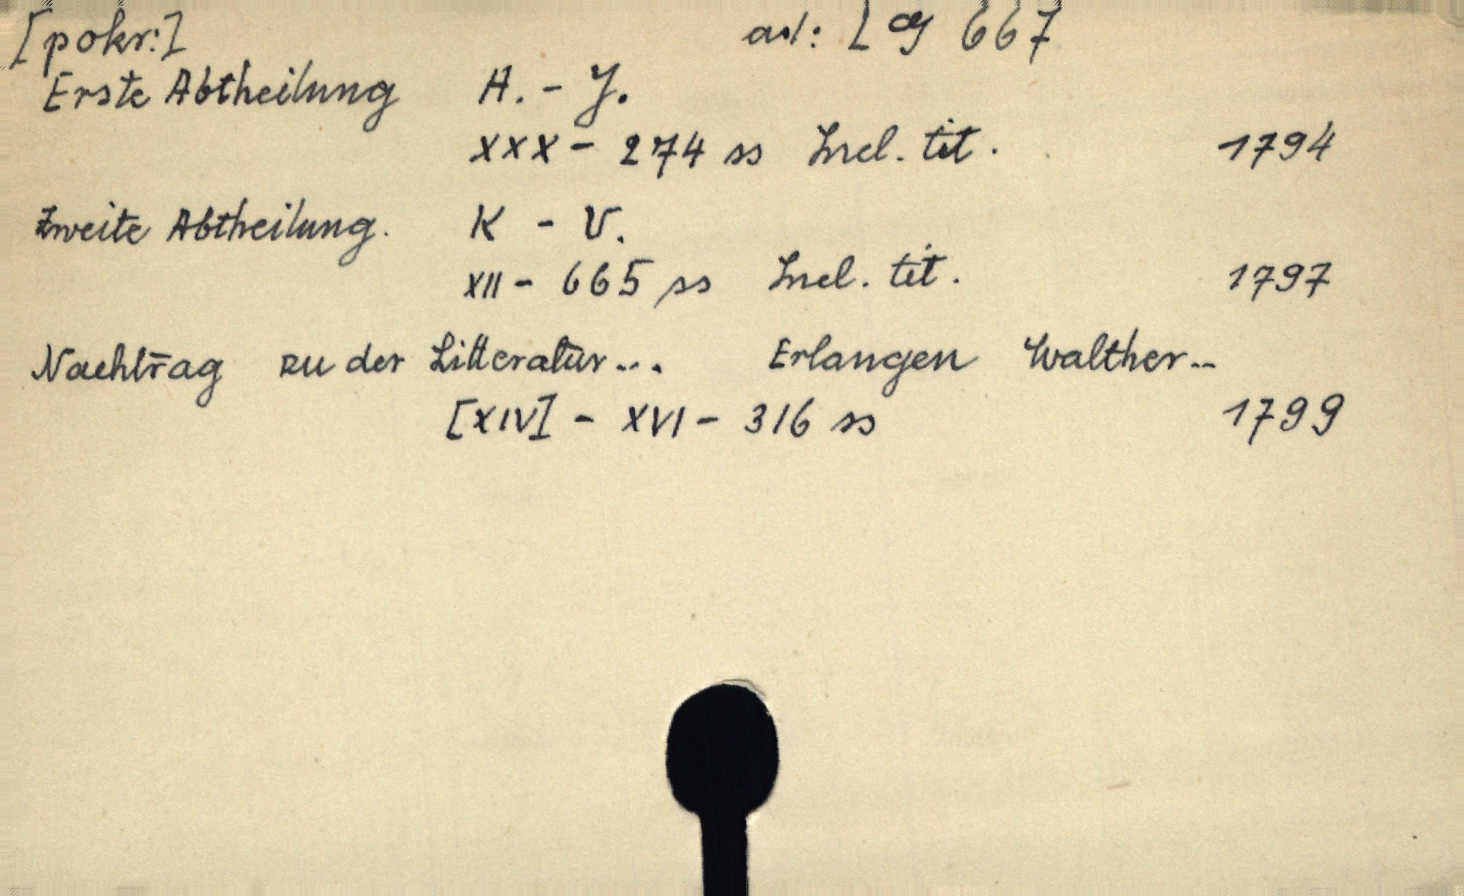 [pokr:] ad: L g 667
Erste Abtheilung A. - J.
XXX - 274 ss Incl. tit. 1794
Zweite Abtheilung. K - V.
XII - 665 ss Incl. tit. 1797
Nachtrag zu der Litteratur... Erlangen Walther..
[XIV] - XVI - 316 ss 1799